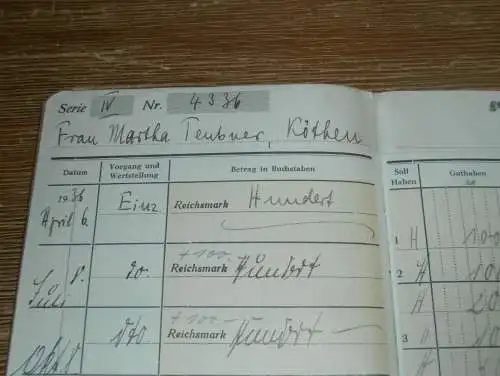 Serie IV Nr. 4336
Frau Martha Teubner, Köthen
Datum Vorgang und Wertstellung Betrag in Buchstaben Soll Haben Guthaben
1936
April 6 Einz Reichsmark Hundert 1 H 100
+100.-
Juli 8. do. Reichsmark Hundert 2 H 10
H 20
+100.-
Okt 8 dto Reichsmark Hundert